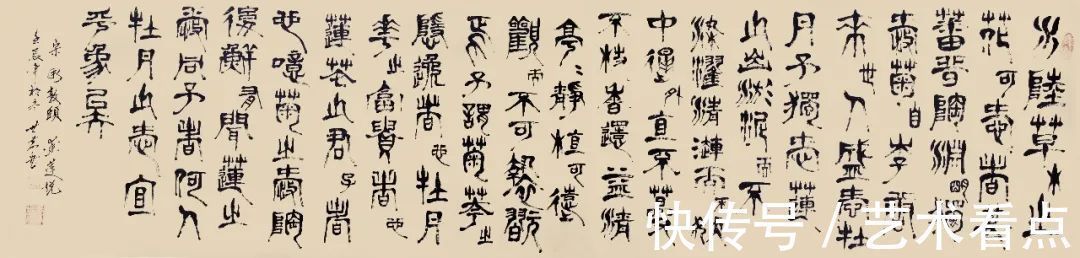 水陸草木之
花可愛者
蕃晉陶淵明獨
愛菊自李唐
来世人盛愛牡
丹予獨愛蓮
之出淤泥而不
染濯清漣而不妖
中通外直不蔓
不枝香遠益清
亭〻静植可遠
觀而不可褻翫
焉予謂菊華之
隱逸者也牡丹
華之富貴者也
蓮花之君子者
也噫菊之愛陶
後鮮有聞蓮之
愛同予者何人
牡丹之愛宜
乎衆矣
宋周敦頤愛蓮説
壬辰年於京
快传号 / 艺术看点